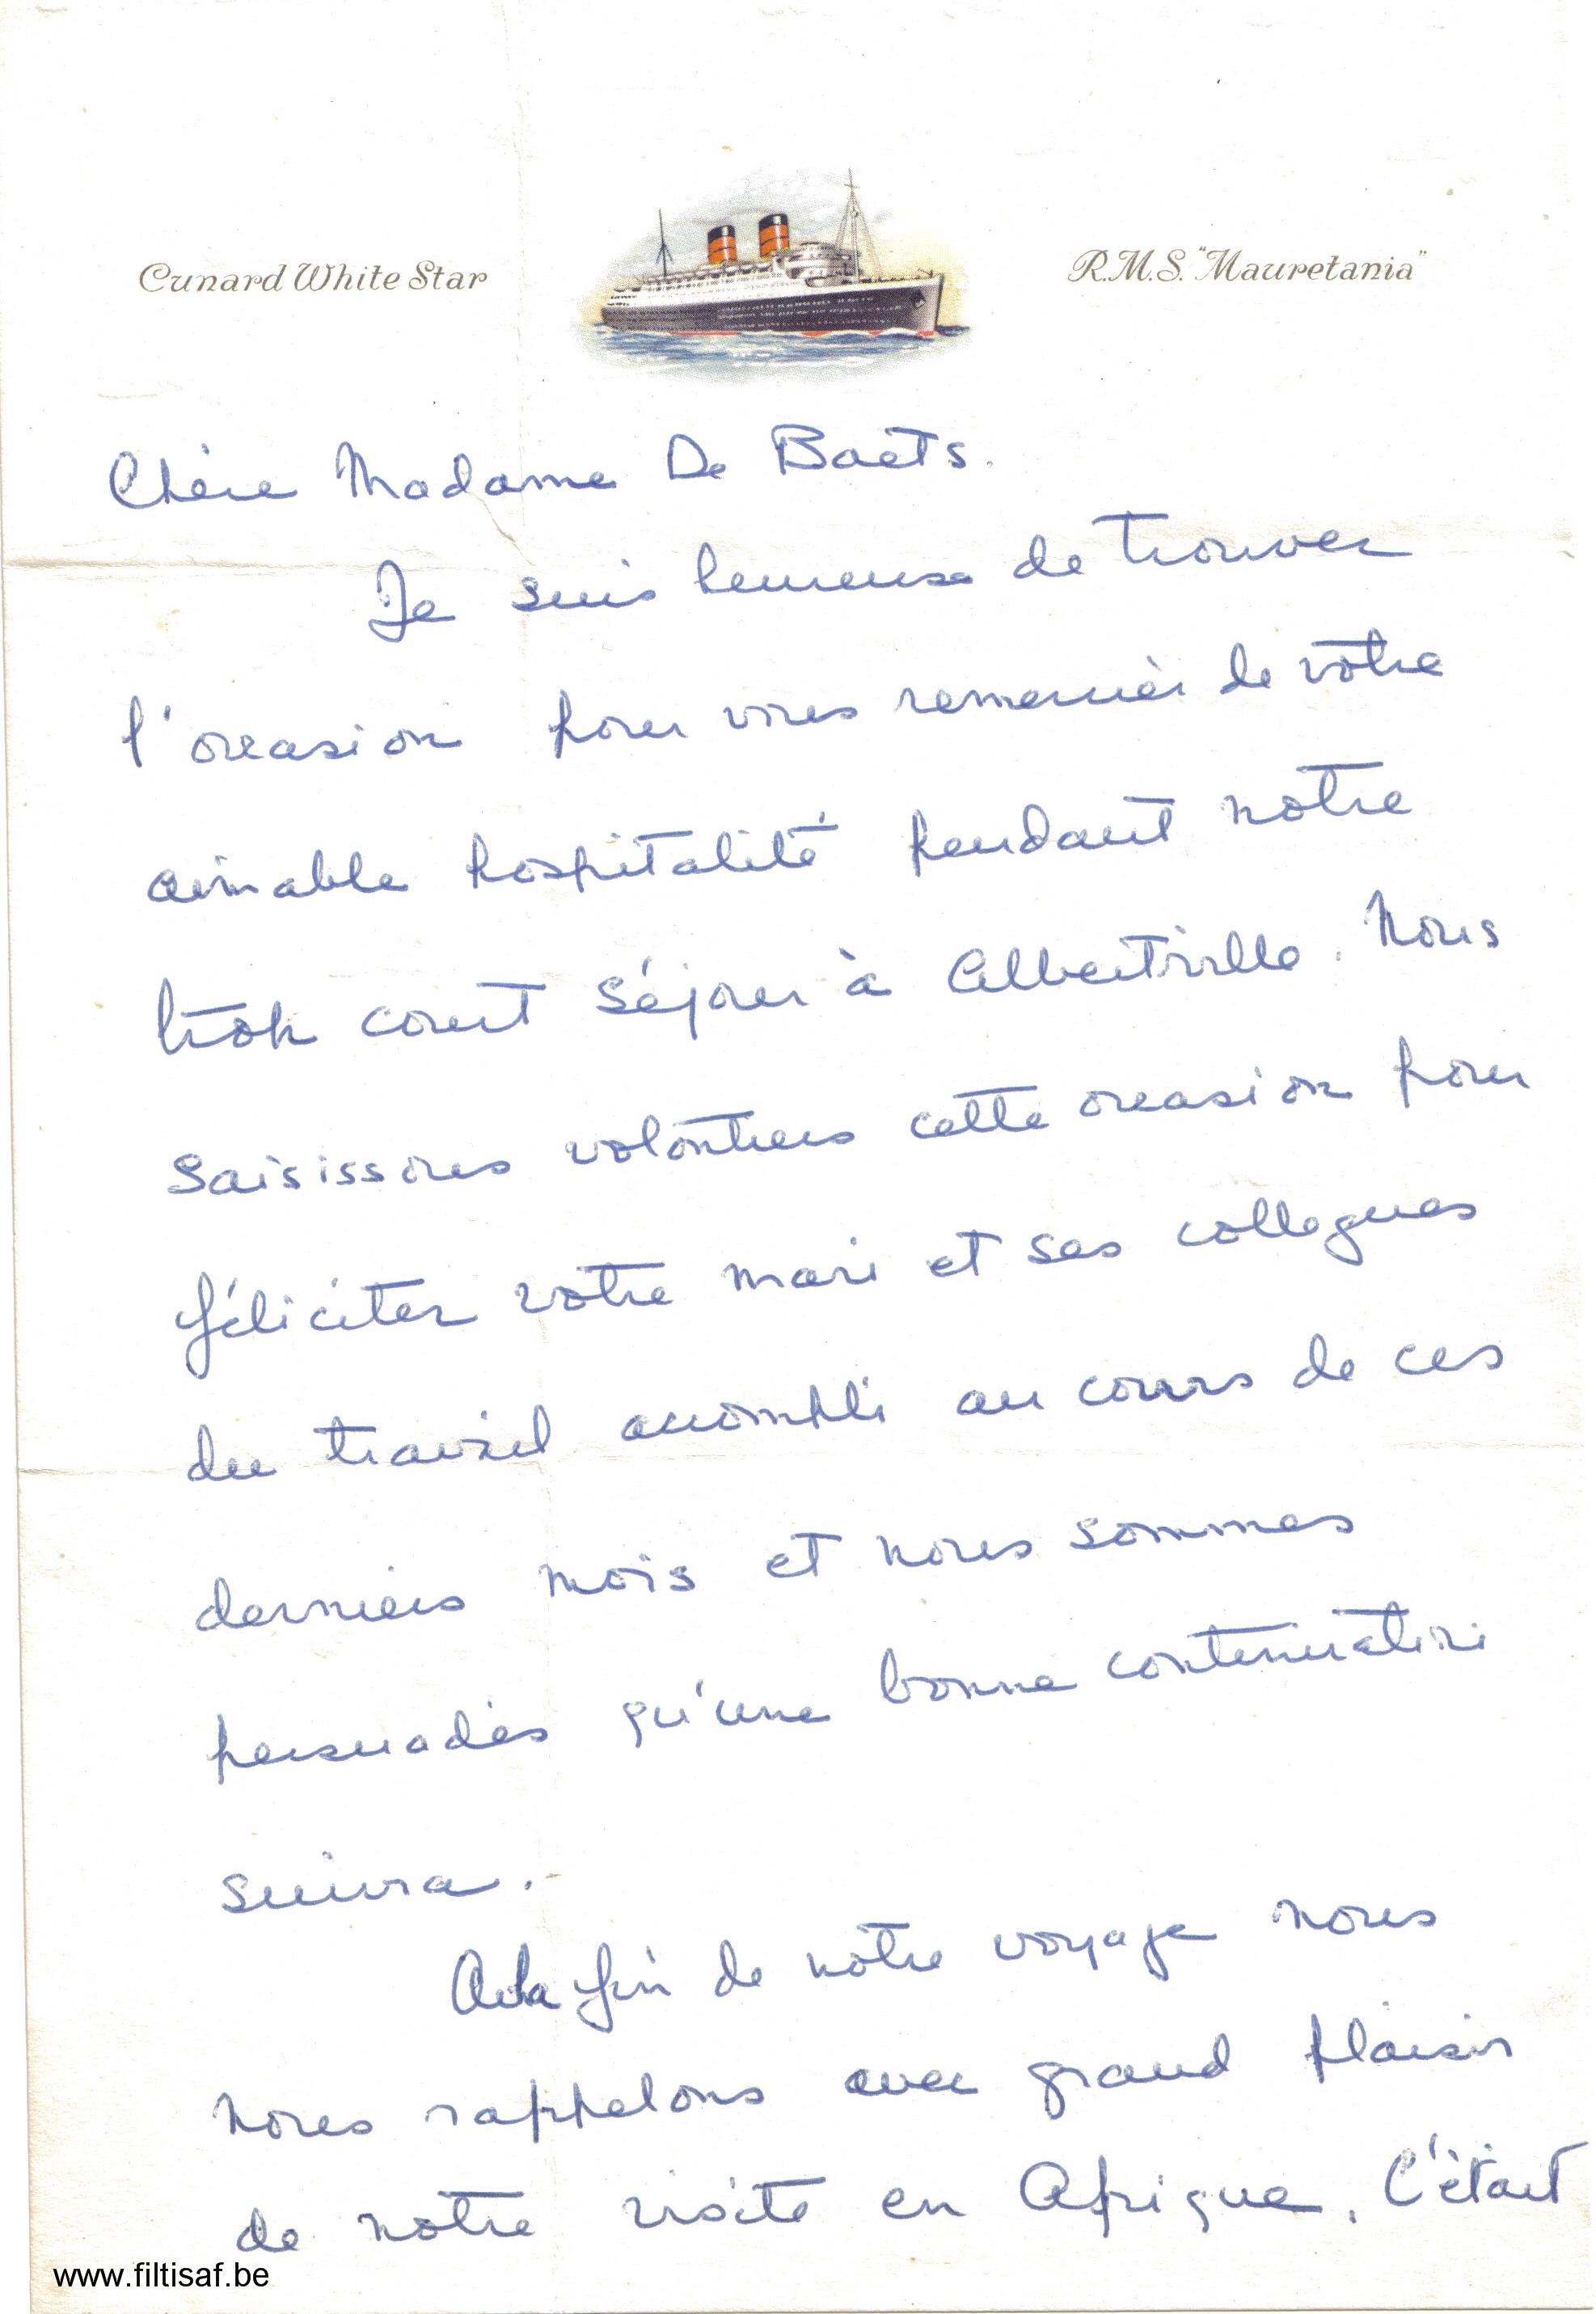 Cunard White Star
R.M.S. "Mauretania"
Chère Madame De Baets.
Je suis heureuse de trouver
l'occasion pour vous remercier de votre
aimable hospitalité pendant notre
trop court séjour à Albertville. Nous
saisissons volontiers cette occasion pour
féliciter votre mari et ses collegues
du travail accompli au cours de ces
derniers mois et nous sommes
persuadés qu'une bonne continuation
suivra.
A la fin de notre voyage nous
nous rappelons avec grand plaisir
de notre visite en Afrique. C'était
www.filtisaf.be